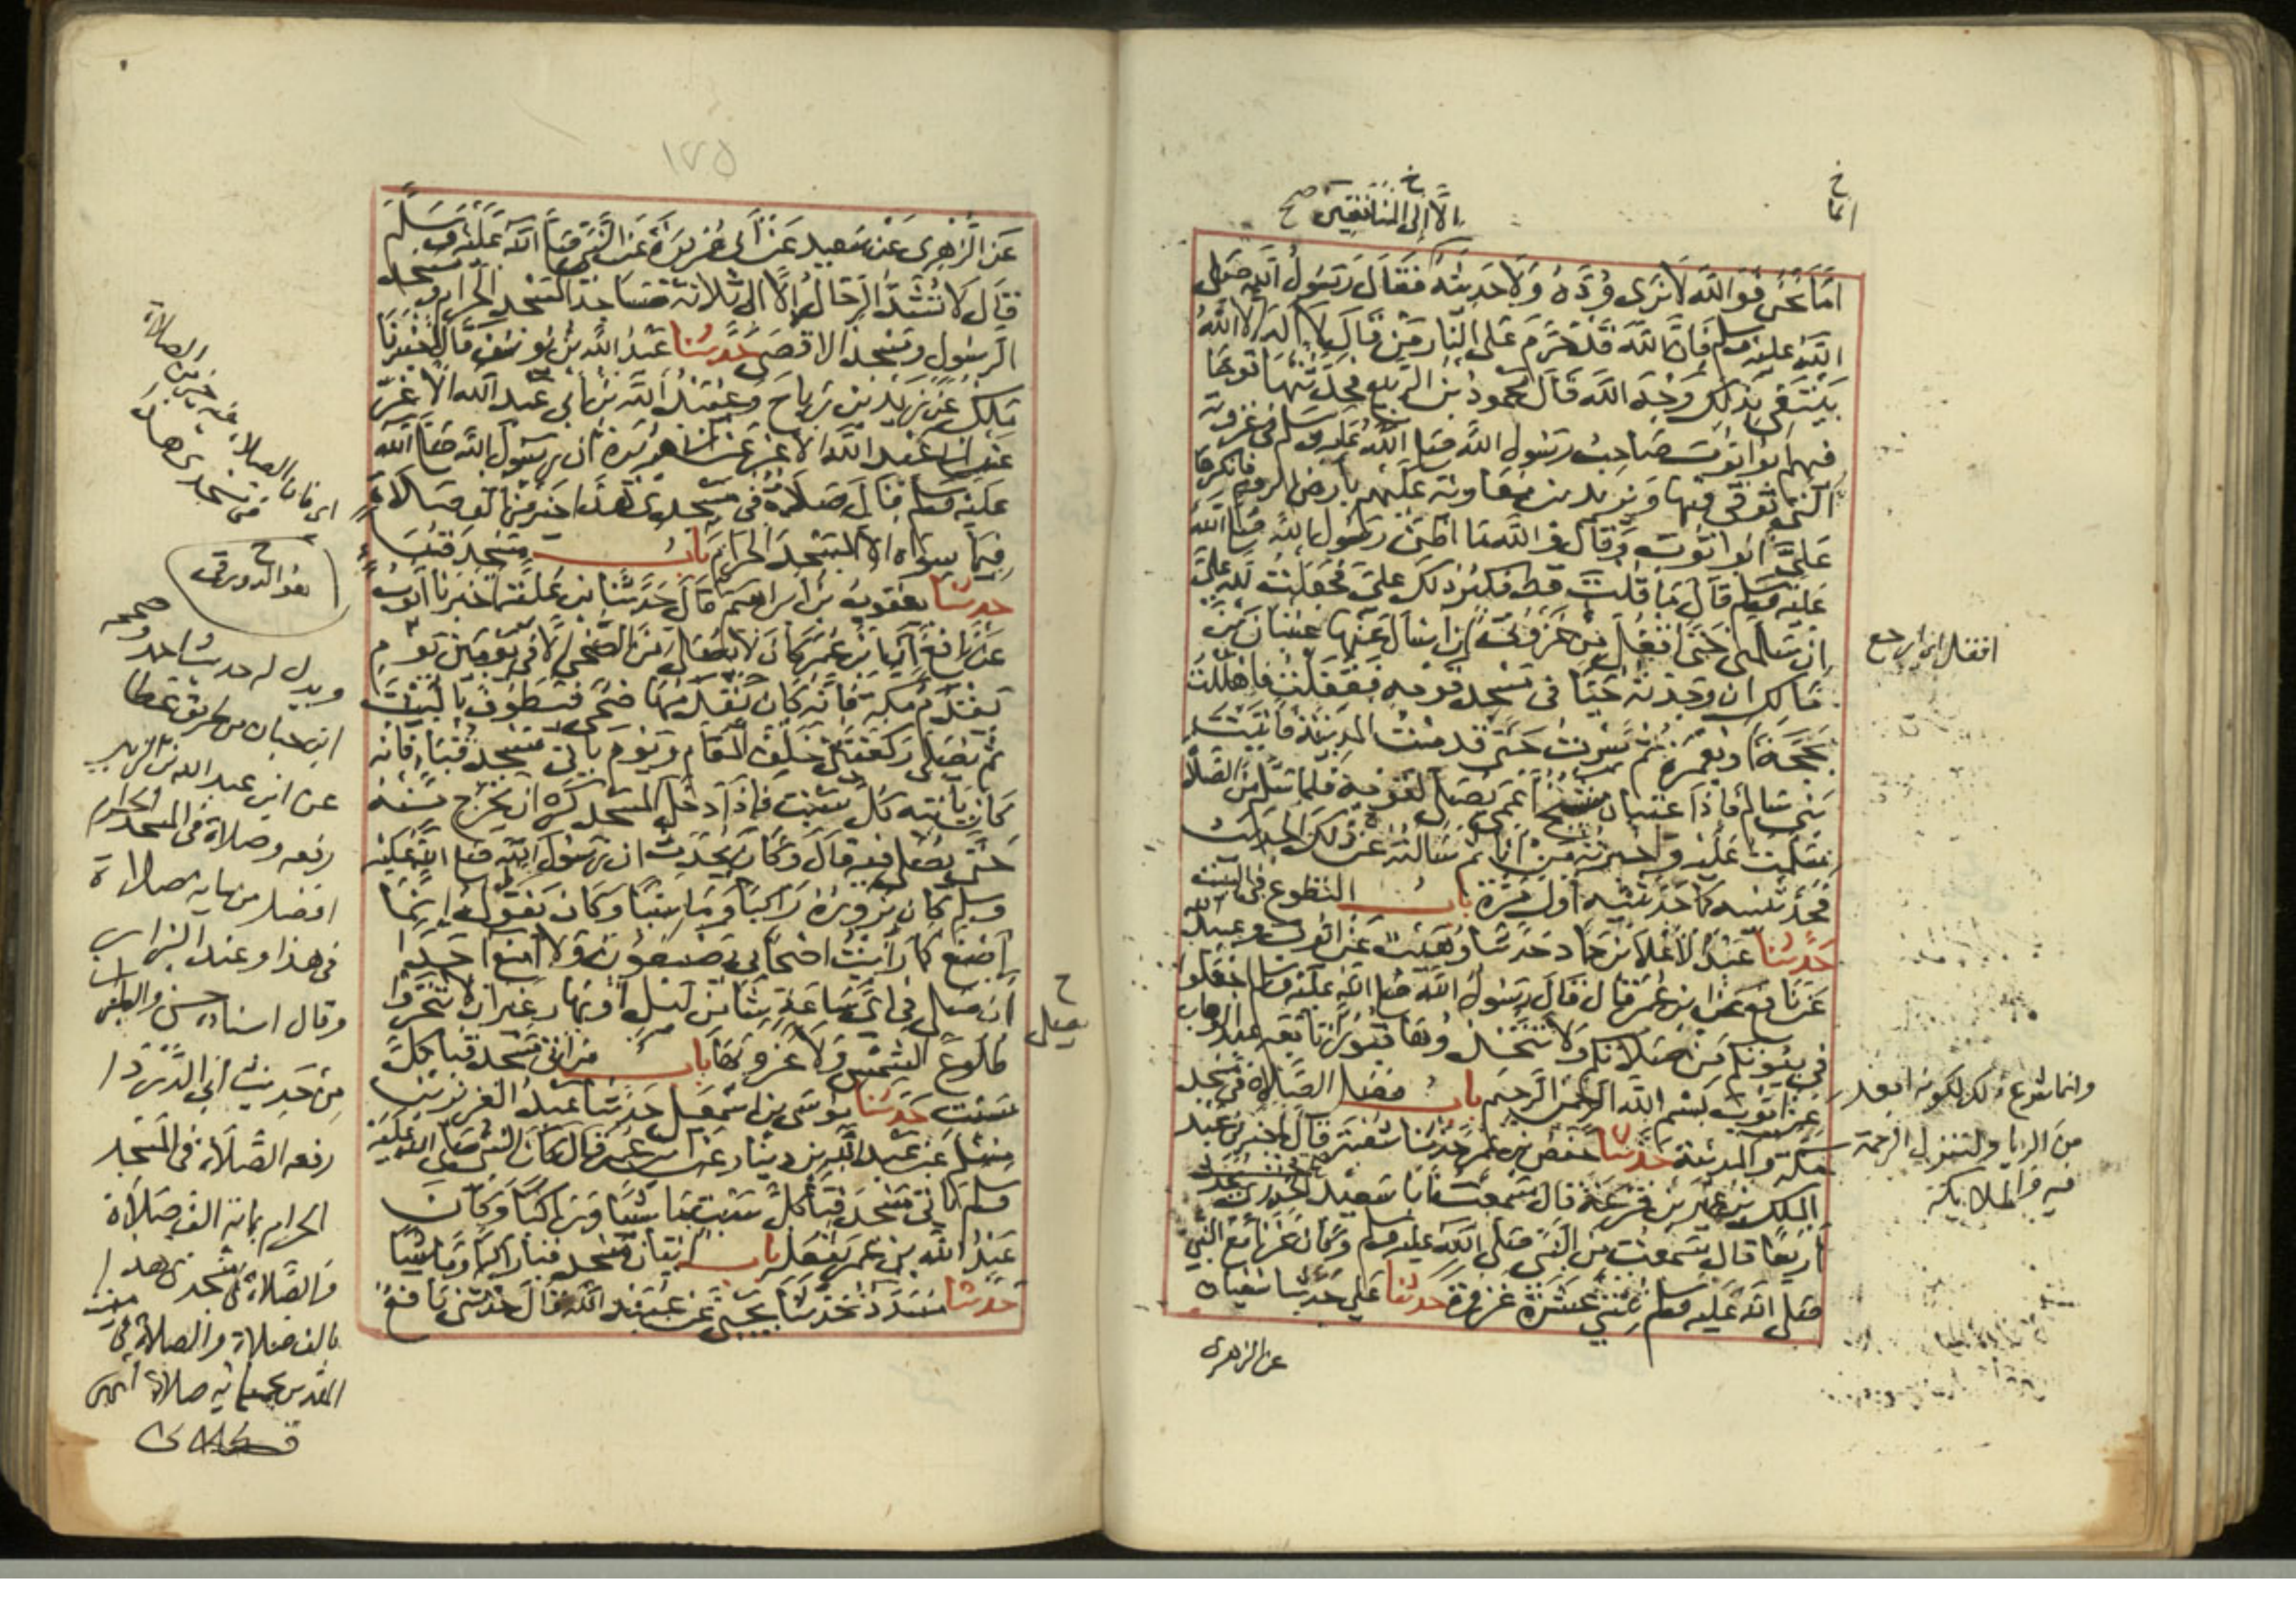 خ
انما
إلا إلى المنافقين صح
خ
اما نحن فوالله لا نرى وده ولا حديثه فقال رسول الله صلى
الله عليه وسلم فان الله قد حرم على النار من قال لا اله الا الله
يبتغي بذلك وجه الله قال محمود بن الربيع فحدثتها قوما
فيهم ابو ايوب صاحب رسول الله صلى الله عليه وسلم في غزوته
التي توفي فيها ويزيد بن معاوية عليهم بارض الروم فانكرها
علي ابو ايوب وقال والله ما اظن رسول الله صلى الله
عليه وسلم قال ما قلت قط فكبر ذلك علي فجعلت لله علي
ان سلمني حتى اقفل من غزوتي ان اسال عنها عتبان بن
مالك ان وجدته حيا في مسجد قومه فقفلت فاهللت
بحجة او بعمرة ثم سرت حتى قدمت المدينة فاتيت
بني سالم فاذا عتبان شيخ اعمى يصلي لقومه فلما سلم من الصلاة
سلمت عليه واخبرته من انا ثم سالته عن ذلك الحديث
فحدثنيه كما حدثنيه اول مرة باب التطوع في البيت
حدثنا عبد الاعلا بن حماد حدثنا وهيب عن ايوب وعبيد الله
عن نافع عن ابن عمر قال قال رسول الله صلى الله عليه وسلم اجعلوا
في بيوتكم من صلاتكم ولا تتخذوها قبورا تابعه عبد الوهاب
عن ايوب بسم الله الرحمن الرحيم باب فضل الصلاة في مسجد
مكة والمدينة حدثنا حفص بن عمر حدثنا شعبة قال اخبرني عبد
الملك بن عمير عن قزعة قال سمعت ابا سعيد الخدري
اربعا قال سمعت من النبي صلى الله عليه وسلم وكان غزا مع النبي
صلى الله عليه وسلم ثنتي عشرة غزوة حدثنا علي حدثنا سفيان
عن الزهري
اقفل اي ارجع
وانما شرع ذلك لكونه ابعد
من الريا ولتنزل الرحمة
فيه والملائكة
١٢٥
عن الزهري عن سعيد عن ابي هريرة عن النبي صلى الله عليه وسلم
قال لا تشد الرحال الا الى ثلاثة مساجد المسجد الحرام ومسجد
الرسول ومسجد الاقصى حدثنا عبد الله بن يوسف قال اخبرنا
ملك عن زيد بن رباح وعبيد الله بن ابي عبد الله الاغر
عن ابي عبد الله الاغر عن ابي هريرة ان رسول الله صلى الله
عليه وسلم قال صلاة في مسجدي هذا خير من الف صلاة
فيما سواه الا المسجد الحرام باب مسجد قباء
حدثنا يعقوب بن ابراهيم قال حدثنا ابن علية اخبرنا ايوب
عن نافع ان ابن عمر كان لا يصلي من الضحى الا في يومين يوم
يقدم مكة فانه كان يقدمها ضحى فيطوف بالبيت
ثم يصلي ركعتين خلف المقام ويوم ياتي مسجد قباء فانه
كان ياتيه كل سبت فاذا دخل المسجد كره ان يخرج منه
حتى يصلي فيه قال وكان يحدث ان رسول الله صلى الله عليه
وسلم كان يزوره راكبا وماشيا وكان يقول انما
اصنع كما رايت اصحابي يصنعون ولا امنع احدا
ان صلى في اي ساعة شاء من ليل او نهار غير ان لا تتحروا
طلوع الشمس ولا غروبها باب من اتى مسجد قبا كل
سبت حدثنا موسى بن اسمعيل حدثنا عبد العزيز بن
مسلم عن عبد الله بن دينار عن ابن عمر قال كان النبي صلى الله عليه
وسلم ياتي مسجد قبا كل سبت ماشيا وراكبا وكان
عبد الله بن عمر يفعله باب اتيان مسجد قبا راكبا وماشيا
حدثنا مسدد حدثنا يحيى عن عبيد الله قال حدثني نافع
خ
يصلي
اي فان الصلاة فيه خير من الصلاة
في مسجدي هذا
خ
هو الدورقي
ويدل له حديث احمد وصححه
ابن حبان من طريق عطا
عن ابن عبد الله بن الزبير
رفعه وصلاة في المسجد الحرام
افضل من ماية صلاة
في هذا وعند البزار
وقال اسناده حسن والطبراني
من حديث ابي الدردا
رفعه الصلاة في المسجد
الحرام بماية الف صلاة
والصلاة في مسجدي هذا
بالف صلاة والصلاة في بيت
المقدس بخمسمائة صلاة انتهى